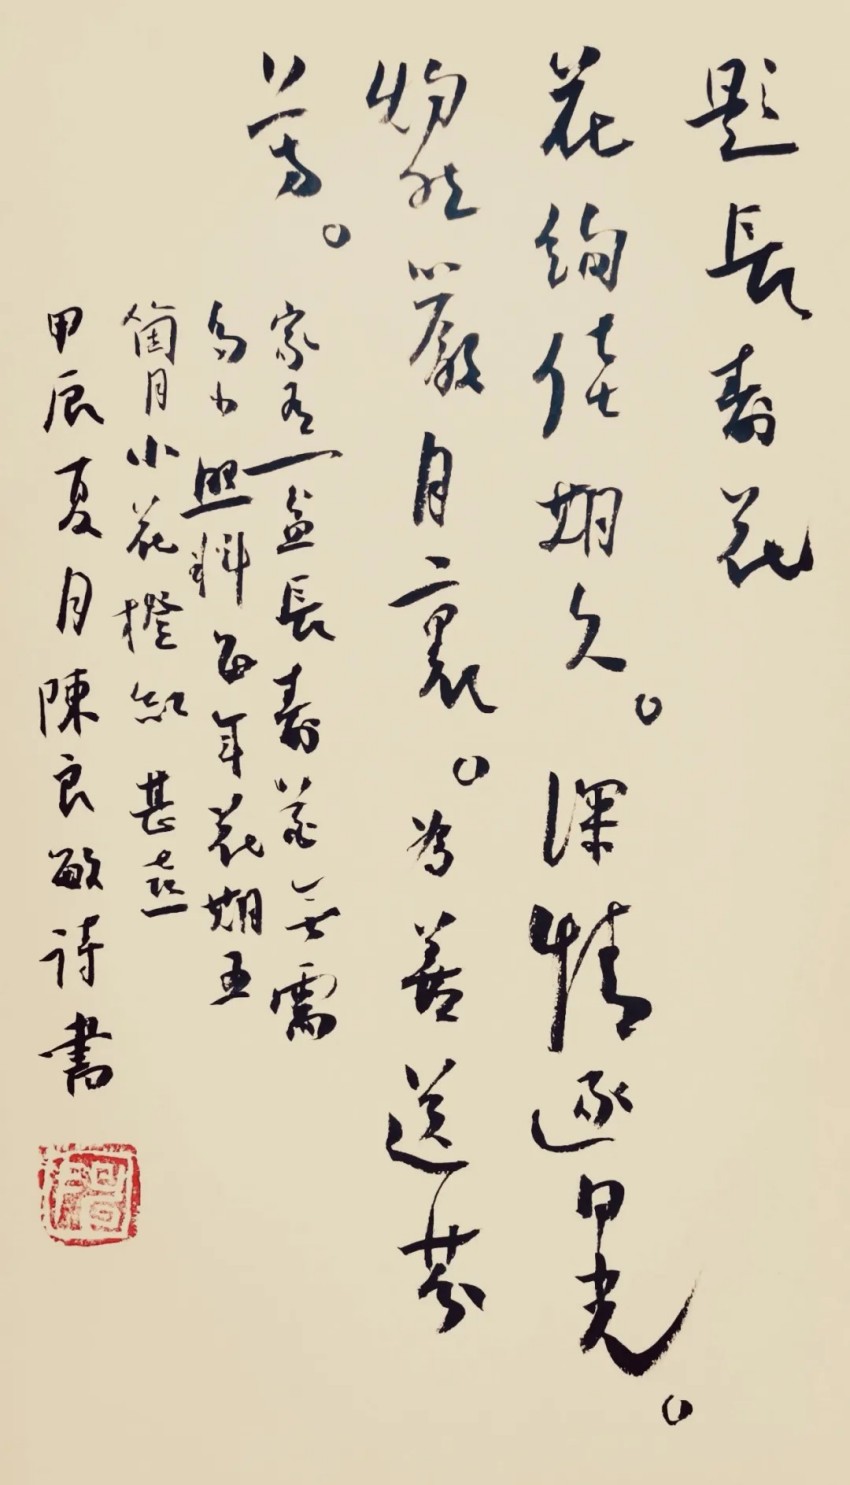 題長壽花
花絢佳期久。深情逐日光。
灼然嚴月裏。為善送芬
芳。
家有一盆長壽花無需
多少照料每年花期五
箇月小花橙紅甚喜
甲辰夏月陳良敏詩書